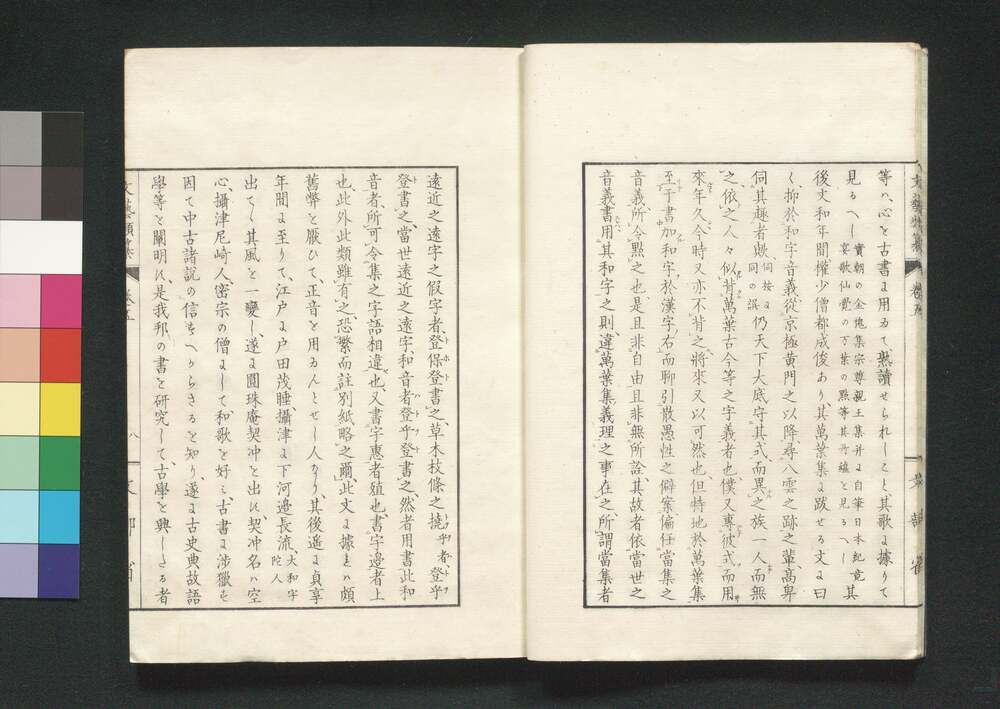 等ハ、心を古書に用ゐて、熟讀せられしこと、其歌に據りて
見るへし 實朝の金槐集宗尊親王集并に自筆日本紀竟宴歌仙覺の万葉の點等其所蘊を見るへし 其
後文和年間權少僧都成俊あり、其萬葉集に跋せる文に曰
く、抑於和字音義、從京極黄門之以降、尋八雲之跡之輩、高卑
伺其趣者歟、伺按に同の誤 仍天下大底守其式、而異之族一人而無
之、依之人々似背萬葉古今等之字義者也、僕又專彼式而用
來年久、今時又亦不背之、將來又以可然也、但特地於萬葉集
至于書加和字、於漢字右而聊引散愚性之僻案偷任當集之
音義、所令點之也、是且非自由且非無所詮、其故者依當世之
音義書用其和字之則、違萬葉集義理之事在之、所謂當集者
遠近之遠字之假字者、登保登書之、草木枝條之撓乎者、登乎
登書之、當世遠近之遠字、和音者登乎登書之、然者用書此和
音者、所可令集之字語相違也、又書字惠者殖也、書字邊者上
也、此外此類雖有之、恐繁而註別紙略之爾、此文に據とハ頗
舊弊を厭ひて、正音を用ゐんとせし人なり、其後遥に貞享
年間に至りて、江戸に戸田茂睡、攝津に下河邊長流、大和宇陀人
出てゝ其風を一變し、遂に圓珠庵契冲を出す、契冲名ハ空
心、攝津尼崎人、密宗の僧にして、和歌を好ミ、古書に涉獵す、
因て中古諸説の信すへからさるを知り、遂に古史典故語
學等を闡明す、是我邦の書を研究して、古學を興したる者
文藝類纂 卷五 八 文部省